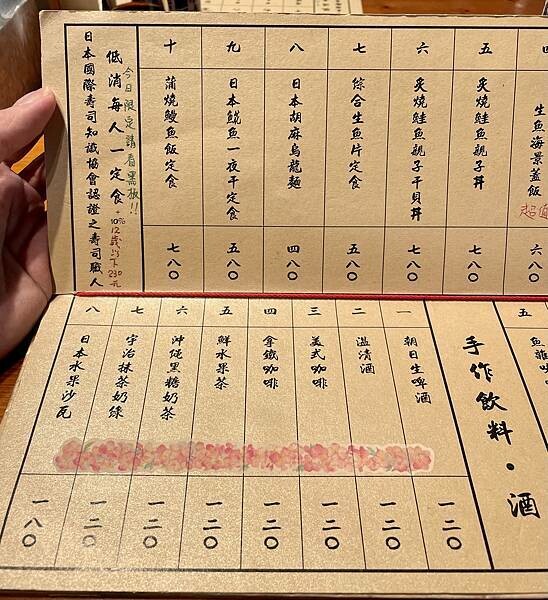 生魚海景蓋飯
五
炙燒鮭魚親子丼
五八〇
六
炙燒鮭魚親子干貝丼
七八〇
七
綜合生魚片定食
五八〇
八
日本胡麻烏龍麵
四八〇
九
日本鯖魚一夜干定食
五八〇
十
蒲燒鰻魚飯定食
七八〇
今日限定請看黑板!!
低消每人一定食
+10%
12歲以下230元
日本國際壽司知識協會認證之壽司職人
五
手作飲料・酒
一
朝日生啤酒
一二〇
二
溫清酒
一二〇
三
美式咖啡
一二〇
四
拿鐵咖啡
一二〇
五
鮮水果茶
一二〇
六
沖繩黑糖奶茶
一二〇
七
宇治抹茶奶綠
一二〇
八
日本水果沙瓦
一八〇